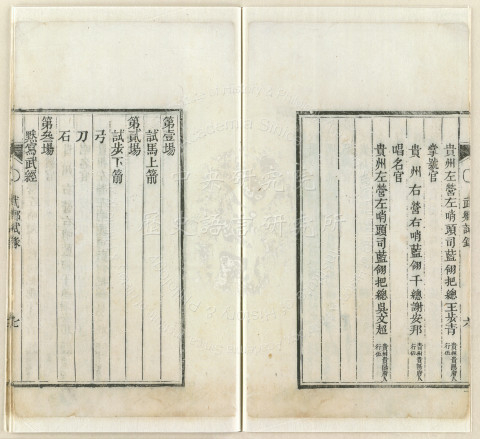 貴州左營左哨頭司藍翎把總王步青
掌號官
貴州右營右哨藍翎千總謝安邦 貴州貴陽府人行伍
唱名官
貴州左營左哨頭司藍翎把總吳文超 貴州貴陽府人行伍
武鄉試錄
六
第壹場
試馬上箭
第貳場
試步下箭
弓
刀
石
第叁場
默寫武經
武鄉試錄
七
中央研究院
歷史語言研究所